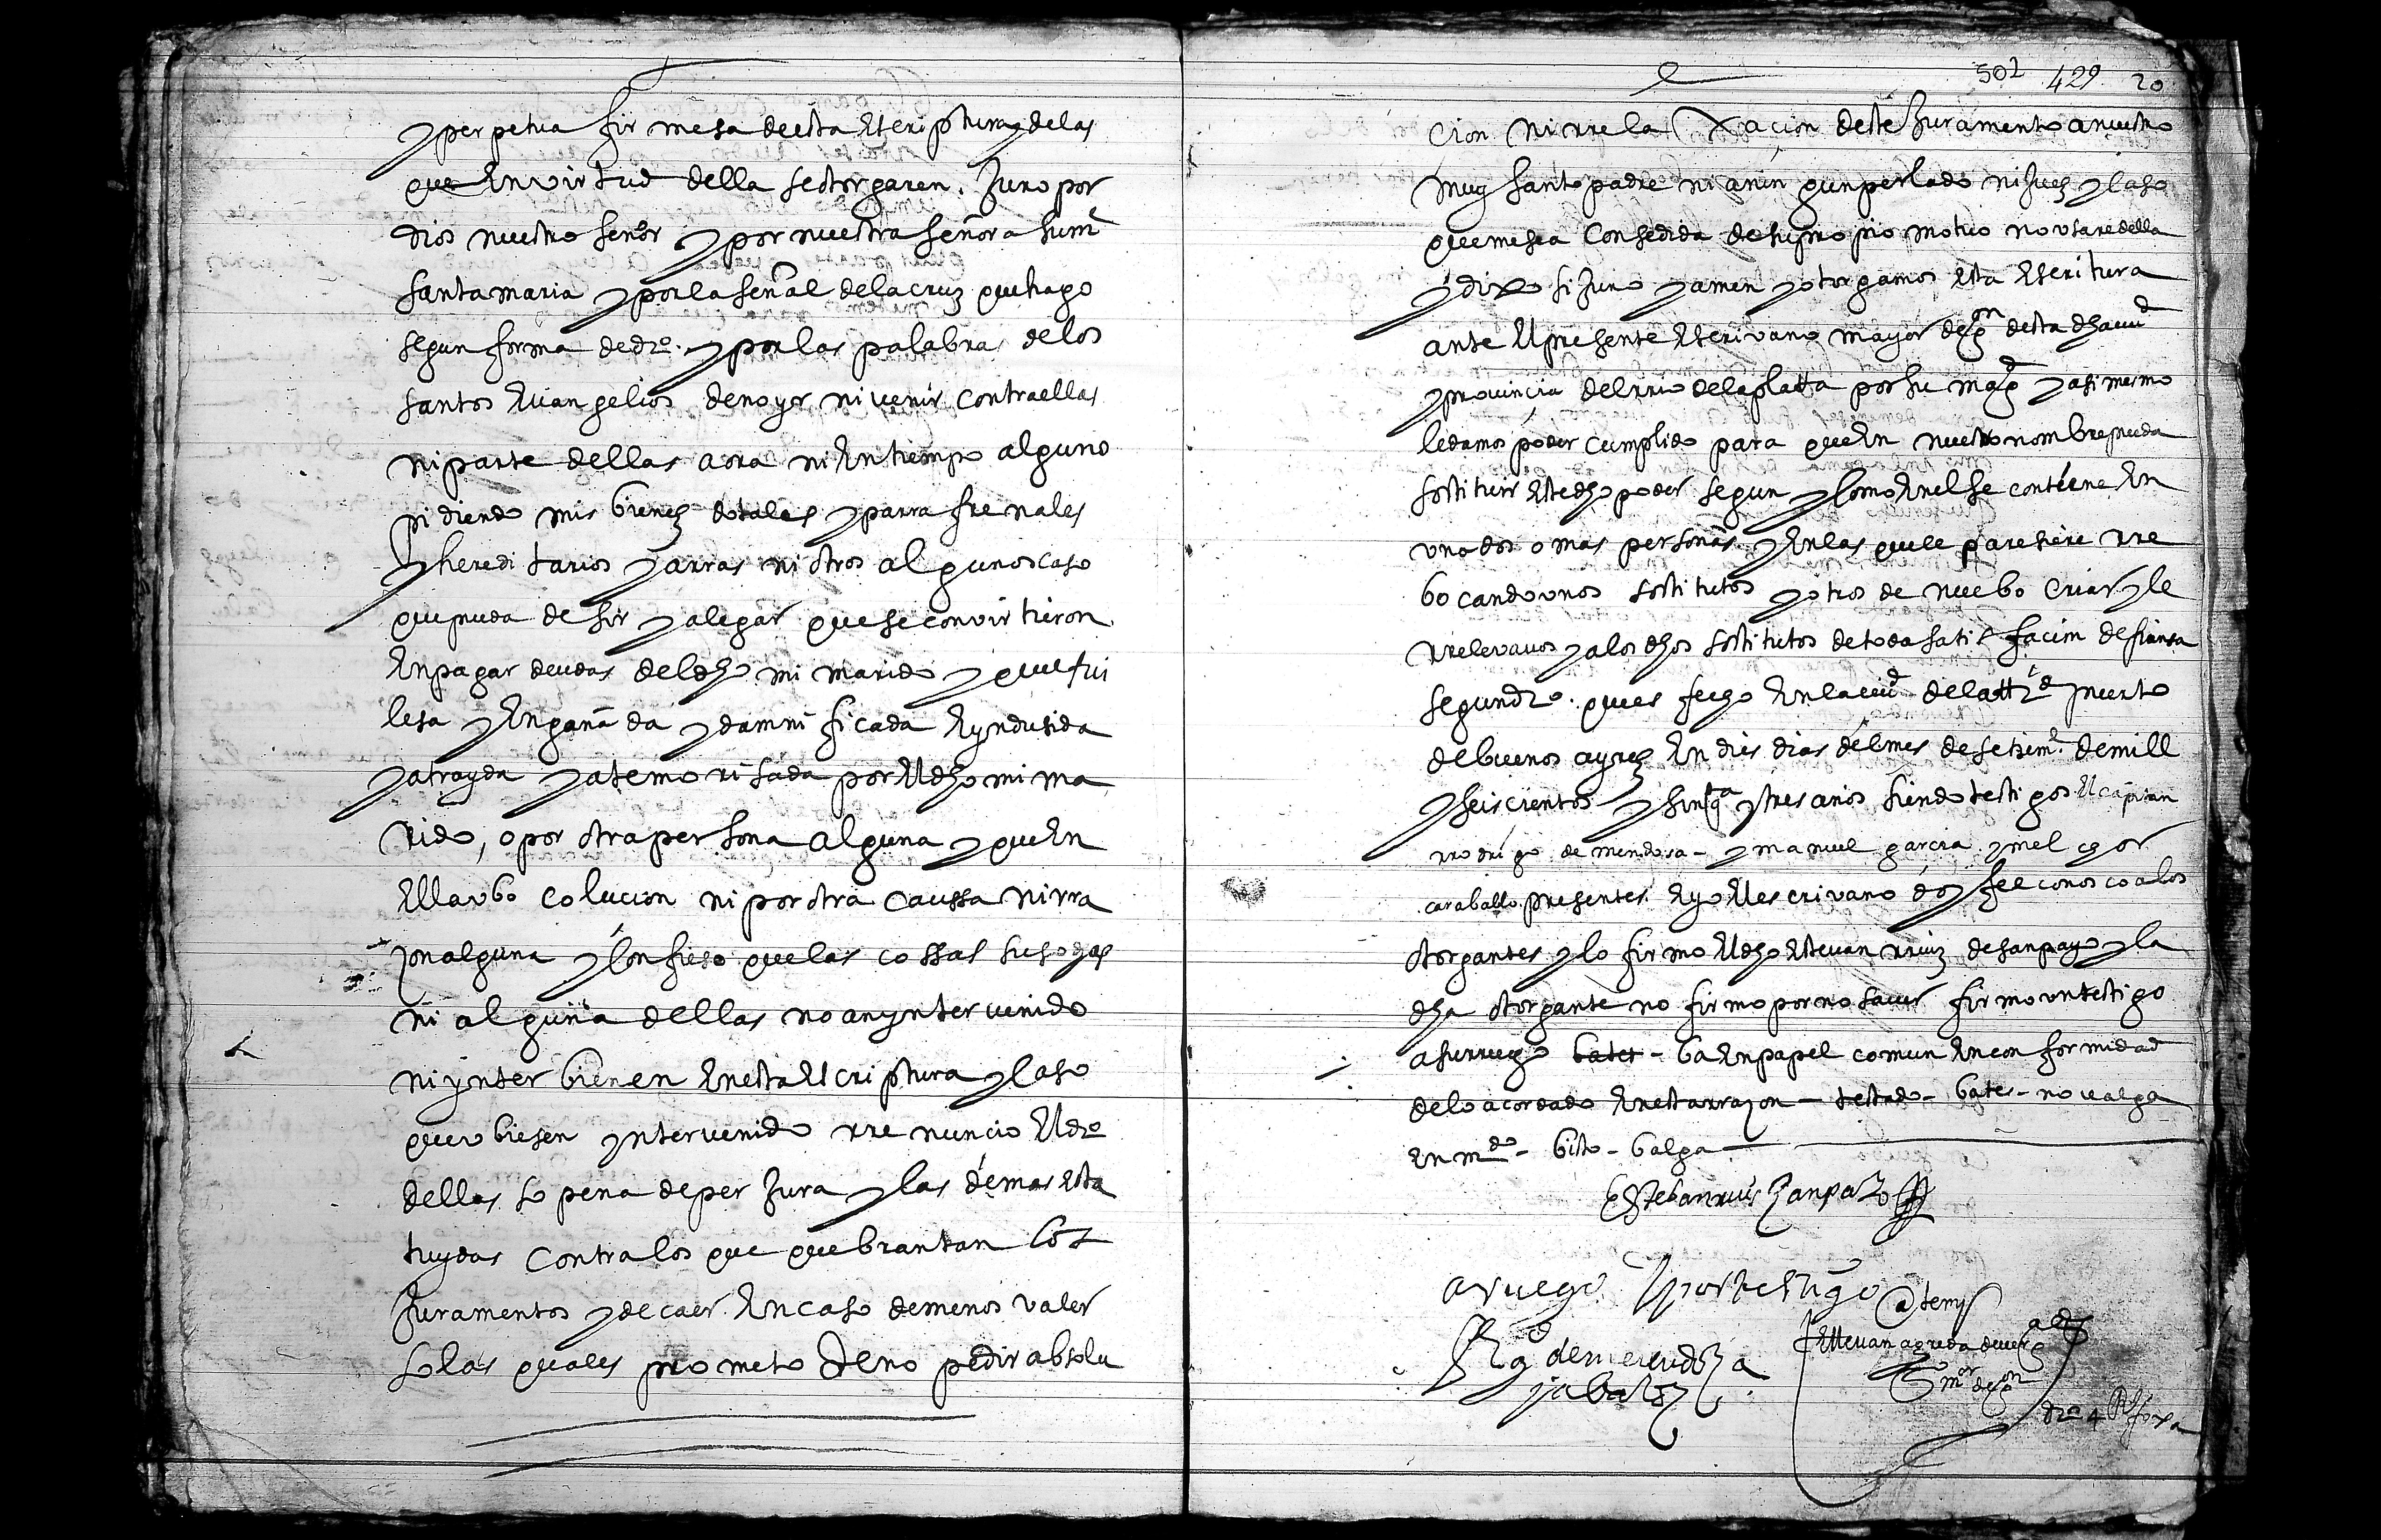 y perpetua firmesa de esta escriptura y de las
que en virtud della se otorgaren. Juro por
dios nuestro señor y por nuestra señora su m.e
santa maria y por la señal de la cruz que hago
segun forma de dro. y por las palabras de los
santos evangelios de no yr ni venir contra ellas
ni parte dellas aora ni en tiempo alguno
pidiendo mis bienes dotales y parrafrenales
y hereditarios y arras ni otros algunos caso
que pueda desir y alegar que se convirtieron
en pagar deudas del dho mi marido y que fui
lesa y engañada y damnificada e yndusida
y atrayda y atemorisada por el dho mi ma
rido, o por otra persona alguna y que en
ella ubo colucion ni por otra caussa ni rra
zon alguna y confieso que las cossas susodhas
ni alguna dellas no an yntervenido
ni ynterbienen en esta escriptura y caso
que ubiesen yntervenido rrenuncio el dro
dellas so pena de perjura y las demas esta
tuydas contra los que quebrantan los
juramentos y de caer en caso de menos valer
so las quales prometo de no pedir absolu
502 429 20
cion ni rrelaxacion deste juramento a nuestro
muy santo padre ni a nin gun perlado ni juez y caso
que me sea consedida de su propio motuo no usare della
y dixo si juro y amen y otorgamos esta escritura
ante el presente escrivano mayor de gon desta dha ciud
y provincia del rrio de la platta por su magd y asimesmo
le damos poder cumplido para que en nuestro nombre pueda
sostituir este dho poder segun y como en el se contiene en
uno dos o mas personas y en las que le paresiere rre
bocando unos sostitutos y otros de nuebo criar y le
rrelevavos y a los dhos sostitutos de toda satisfacion de fiansa
segun dro. que es fecho en la ciud de la ttrid puerto
de buenos ayres en dies dias del mes de setiem.e de mill
y seiscientos y sinqta y tres años siendo testigos el capitan
rrodrigo de mendosa - y manuel garcia y melchor
caraballo presentes. e yo el escrivano doy fee conosco a los
otorgantes y lo firmo el dho estevan rruiz de sanpayo y la
dha otorgante no firmo por no saver firmo un testigo
a su rruego bates - ba en papel comun en conformidad
de lo acordado en esta rrazon - testado - bates - no valga
en mdo - bisto - balga
Esteban ruis sanpaio
a ruego y por testigo
Rgo de mendoza
Ante my
Estevan agreda de vergara
s.no mor de gon
dros 4 Rs foxa